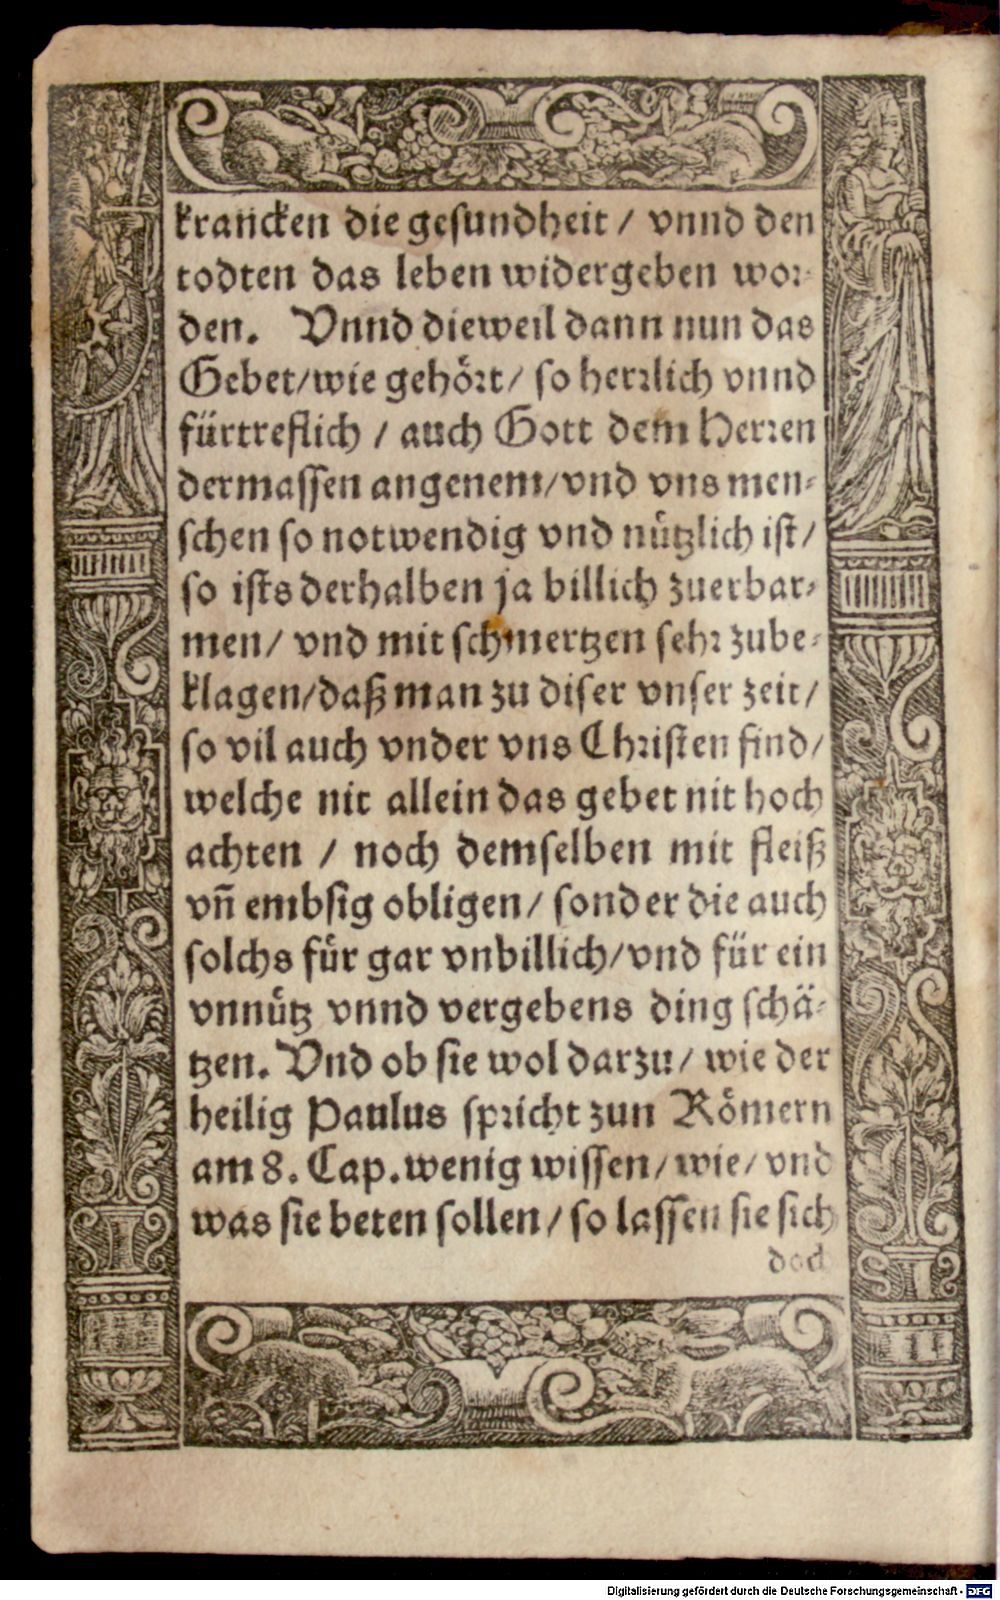 krancken die gesundheit / vnnd den
todten das leben widergeben wor-
den. Vnnd dieweil dann nun das
Gebet/wie gehört/ so herrlich vnnd
fürtreflich / auch Gott dem Herren
dermassen angenem/vnd vns men-
schen so notwendig vnd nützlich ist/
so ists derhalben ja billich zuerbar-
men/ vnd mit schmertzen sehr zube-
klagen/daß man zu diser vnser zeit/
so vil auch vnder vns Christen find/
welche nit allein das gebet nit hoch
achten / noch demselben mit fleiß
vñ embsig obligen/ sonder die auch
solchs für gar vnbillich/vnd für ein
vnnütz vnnd vergebens ding schä-
tzen. Vnd ob sie wol darzu/ wie der
heilig Paulus spricht zun Römern
am 8. Cap. wenig wissen/ wie/ vnd
was sie beten sollen/ so lassen sie sich
doch
Digitalisierung gefördert durch die Deutsche Forschungsgemeinschaft - DFG